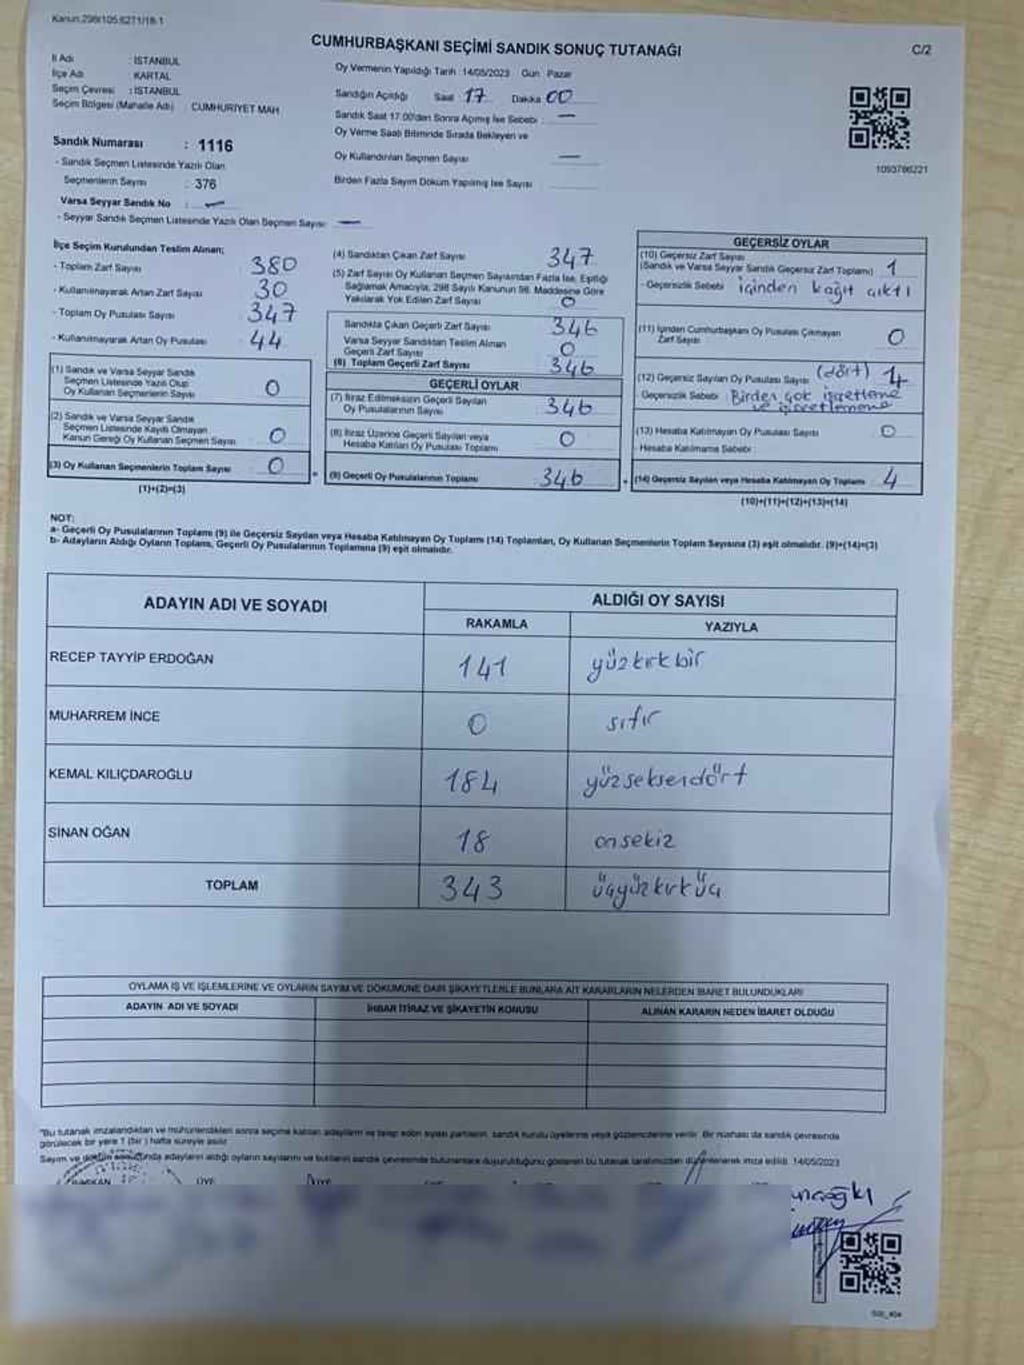 Kanun:298/105.6271/18-1
CUMHURBAŞKANI SEÇİMİ SANDIK SONUÇ TUTANAĞI
C/2
İl Adı : İSTANBUL
İlçe Adı : KARTAL
Seçim Çevresi : İSTANBUL
Seçim Bölgesi (Mahalle Adı) : CUMHURİYET MAH
Oy Vermenin Yapıldığı Tarih :14/05/2023 Gün : Pazar
Sandığın Açıldığı Saat 17 Dakika 00
Sandık Saat 17:00'den Sonra Açımış İse Sebebi : —
Oy Verme Saati Bitiminde Sırada Bekleyen ve
Oy Kullandırılan Seçmen Sayısı —
Birden Fazla Sayım Döküm Yapılmış İse Sayısı
1093786221
Sandık Numarası : 1116
- Sandık Seçmen Listesinde Yazılı Olan
Seçmenlerin Sayısı : 376
Varsa Seyyar Sandık No : —
- Seyyar Sandık Seçmen Listesinde Yazılı Olan Seçmen Sayısı : —
İlçe Seçim Kurulundan Teslim Alınan;
- Toplam Zarf Sayısı 380
- Kullanılmayarak Artan Zarf Sayısı 30
- Toplam Oy Pusulası Sayısı 347
- Kullanılmayarak Artan Oy Pusulası 44
(1) Sandık ve Varsa Seyyar Sandık
Seçmen Listesinde Yazılı Olup
Oy Kullanan Seçmenlerin Sayısı 0
(2) Sandık ve Varsa Seyyar Sandık
Seçmen Listesinde Kayıtlı Olmayan
Kanun Gereği Oy Kullanan Seçmen Sayısı 0
(3) Oy Kullanan Seçmenlerin Toplam Sayısı 0
(1)+(2)=(3)
(4) Sandıktan Çıkan Zarf Sayısı 347
(5) Zarf Sayısı Oy Kullanan Seçmen Sayısından Fazla İse, Eşitliği
Sağlamak Amacıyla, 298 Sayılı Kanunun 98. Maddesine Göre
Yakılarak Yok Edilen Zarf Sayısı 0
Sandıkta Çıkan Geçerli Zarf Sayısı 346
Varsa Seyyar Sandıktan Teslim Alınan
Geçerli Zarf Sayısı 0
(6) Toplam Geçerli Zarf Sayısı 346
GEÇERLİ OYLAR
(7) İtiraz Edilmeksizin Geçerli Sayılan
Oy Pusulalarının Sayısı 346
(8) İtiraz Üzerine Geçerli Sayılan veya
Hesaba Katılan Oy Pusulası Toplamı 0
(9) Geçerli Oy Pusulalarının Toplamı 346
GEÇERSİZ OYLAR
(10) Geçersiz Zarf Sayısı
(Sandık ve Varsa Seyyar Sandık Geçersiz Zarf Toplamı) 1
- Geçersizlik Sebebi : içinden kağıt çıktı
(11) İçinden Cumhurbaşkanı Oy Pusulası Çıkmayan
Zarf Sayısı 0
(12) Geçersiz Sayılan Oy Pusulası Sayısı (dört) 4
Geçersizlik Sebebi : Birden çok işaretleme
ve işaretlememe
(13) Hesaba Katılmayan Oy Pusulası Sayısı 0
- Hesaba Katılmama Sebebi :
(14) Geçersiz Sayılan veya Hesaba Katılmayan Oy Toplamı 4
(10)+(11)+(12)+(13)=(14)
NOT:
a- Geçerli Oy Pusulalarının Toplamı (9) ile Geçersiz Sayılan veya Hesaba Katılmayan Oy Toplamı (14) Toplamları, Oy Kullanan Seçmenlerin Toplam Sayısına (3) eşit olmalıdır. (9)+(14)=(3)
b- Adayların Aldığı Oyların Toplamı, Geçerli Oy Pusulalarının Toplamına (9) eşit olmalıdır.
ADAYIN ADI VE SOYADI ALDIĞI OY SAYISI
RAKAMLA YAZIYLA
RECEP TAYYİP ERDOĞAN 141 yüzkırkbir
MUHARREM İNCE 0 sıfır
KEMAL KILIÇDAROĞLU 184 yüzseksendört
SİNAN OĞAN 18 onsekiz
TOPLAM 343 üçyüzkırküç
OYLAMA İŞ VE İŞLEMLERİNE VE OYLARIN SAYIM VE DÖKÜMÜNE DAİR ŞİKAYETLERLE BUNLARA AİT KARARLARIN NELERDEN İBARET BULUNDUKLARI
ADAYIN ADI VE SOYADI İHBAR İTİRAZ VE ŞİKAYETİN KONUSU ALINAN KARARIN NEDEN İBARET OLDUĞU
"Bu tutanak imzalandıktan ve mühürlendikten sonra seçime katılan adayların ve talep eden siyasi partilerin, sandık kurulu üyelerine veya gözlemcilerine verilir. Bir nüshası da sandık çevresinde
görülecek bir yere 1 (bir ) hafta süreyle asılır.
Sayım ve döküm sonucunda adayların aldığı oyların sayılarını ve bunların sandık çevresinde bulunanlara duyurulduğunu gösteren bu tutanak tarafımızdan düzenlenerek imza edildi. 14/05/2023
BAŞKAN ÜYE ÜYE ÜYE